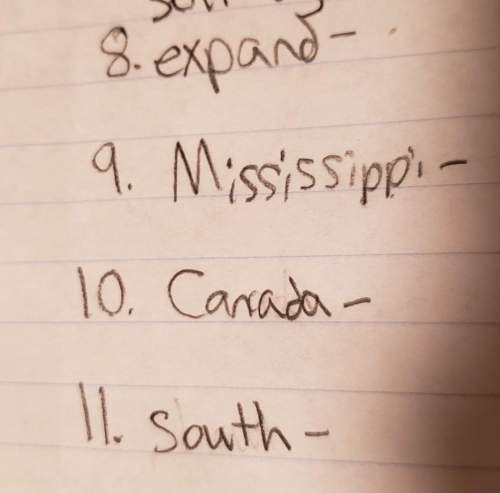 8. expand-
9. Mississippi-
10. Canada-
11. South-